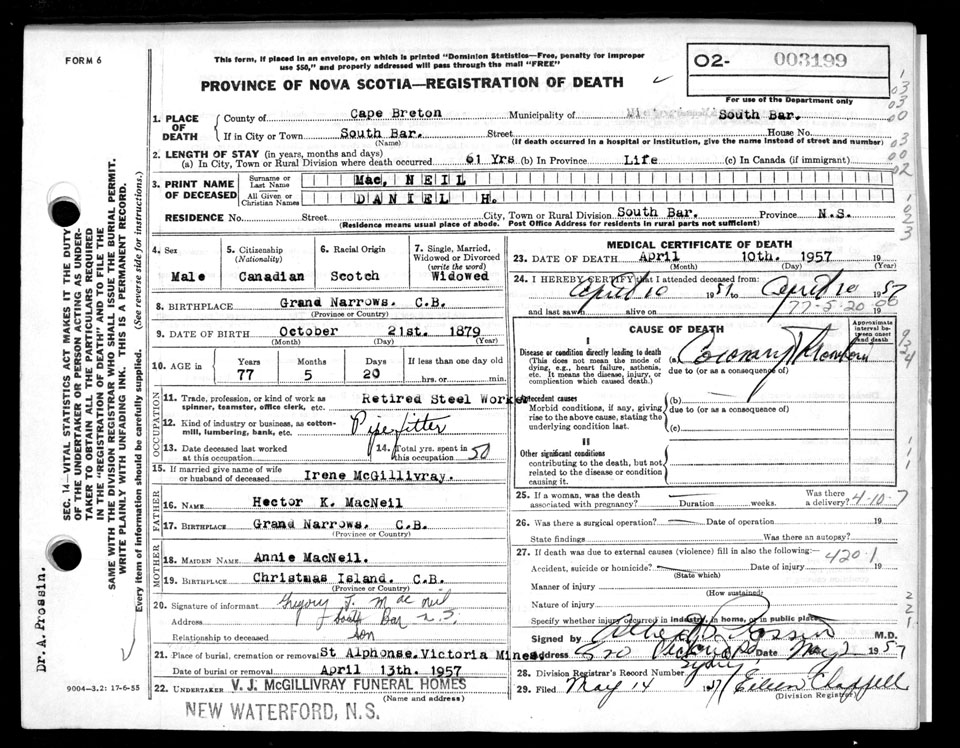 FORM 6
This form, if placed in an envelope, on which is printed "Dominion Statistics—Free, penalty for improper
use $50," and properly addressed will pass through the mail "FREE"
PROVINCE OF NOVA SCOTIA—REGISTRATION OF DEATH
02- 003199
For use of the Department only
1. PLACE OF DEATH
County of Cape Breton Municipality of South Bar.
If in City or Town South Bar. Street House No.
(Name) (If death occurred in a hospital or institution, give the name instead of street and number)
2. LENGTH OF STAY (in years, months and days)
(a) In City, Town or Rural Division where death occurred 61 Yrs (b) In Province Life (c) In Canada (if immigrant)
3. PRINT NAME OF DECEASED
Surname or Last Name Mac. NEIL
All Given or Christian Names DANIEL H.
RESIDENCE No. Street City, Town or Rural Division South Bar. Province N.S.
(Residence means usual place of abode. Post Office Address for residents in rural parts not sufficient)
4. Sex Male
5. Citizenship (Nationality) Canadian
6. Racial Origin Scotch
7. Single, Married, Widowed or Divorced (write the word) Widowed
8. BIRTHPLACE Grand Narrows. C.B.
(Province or Country)
9. DATE OF BIRTH October 21st. 1879
(Month) (Day) (Year)
10. AGE in Years 77 Months 5 Days 20 If less than one day old hrs. or min.
OCCUPATION
11. Trade, profession, or kind of work as spinner, teamster, office clerk, etc. Retired Steel Worker
12. Kind of industry or business, as cotton-mill, lumbering, bank, etc. Pipefitter
13. Date deceased last worked at this occupation 14. Total yrs. spent in this occupation 50
15. If married give name of wife or husband of deceased Irene McGillivray.
FATHER
16. NAME Hector K. MacNeil
17. BIRTHPLACE Grand Narrows. C.B.
(Province or Country)
MOTHER
18. MAIDEN NAME Annie MacNeil.
19. BIRTHPLACE Christmas Island. C.B.
(Province or Country)
20. Signature of informant Gregory J. Mac neil
Address South Bar N.S.
Relationship to deceased son
21. Place of burial, cremation or removal St Alphonse. Victoria Mines.
Date of burial or removal April 13th. 1957
22. UNDERTAKER V. J. McGILLIVRAY FUNERAL HOMES
(Name and address)
NEW WATERFORD, N.S.
MEDICAL CERTIFICATE OF DEATH
23. DATE OF DEATH April 10th. 1957 19
(Month) (Day) (Year)
24. I HEREBY CERTIFY that I attended deceased from:
April 10 1957 to April 10 1957
and last saw alive on 19
77-5-20
CAUSE OF DEATH
Approximate interval between onset and death
I
Disease or condition directly leading to death
(This does not mean the mode of dying, e.g., heart failure, asthenia, etc. It means the disease, injury, or complication which caused death.)
(a) Coronary Thrombosis
due to (or as a consequence of)
Antecedent causes
Morbid conditions, if any, giving rise to the above cause, stating the underlying condition last.
(b)
due to (or as a consequence of)
(c)
II
Other significant conditions
contributing to the death, but not related to the disease or condition causing it.
25. If a woman, was the death associated with pregnancy? Duration weeks. Was there a delivery?
4-10-7
26. Was there a surgical operation? Date of operation 19
State findings Was there an autopsy?
27. If death was due to external causes (violence) fill in also the following:
420.1
Accident, suicide or homicide? Date of injury 19
(State which)
Manner of injury
(How sustained)
Nature of injury
Specify whether injury occurred in industry, in home, or in public place
Signed by M.D.
Address Date May 2 1957
Sydney
28. Division Registrar's Record Number
29. Filed May 14 1957 Eileen Chappell
(Division Registrar)
SEC. 14—VITAL STATISTICS ACT MAKES IT THE DUTY
OF THE UNDERTAKER OR PERSON ACTING AS UNDER-
TAKER TO OBTAIN ALL THE PARTICULARS REQUIRED
IN THE "REGISTRATION OF DEATH" AND TO FILE THE
SAME WITH THE DIVISION REGISTRAR WHO SHALL ISSUE THE BURIAL PERMIT.
WRITE PLAINLY WITH UNFADING INK. THIS IS A PERMANENT RECORD.
Every item of information should be carefully supplied. (See reverse side for instructions.)
Dr. A. Prossin.
9004-3.2: 17-6-55